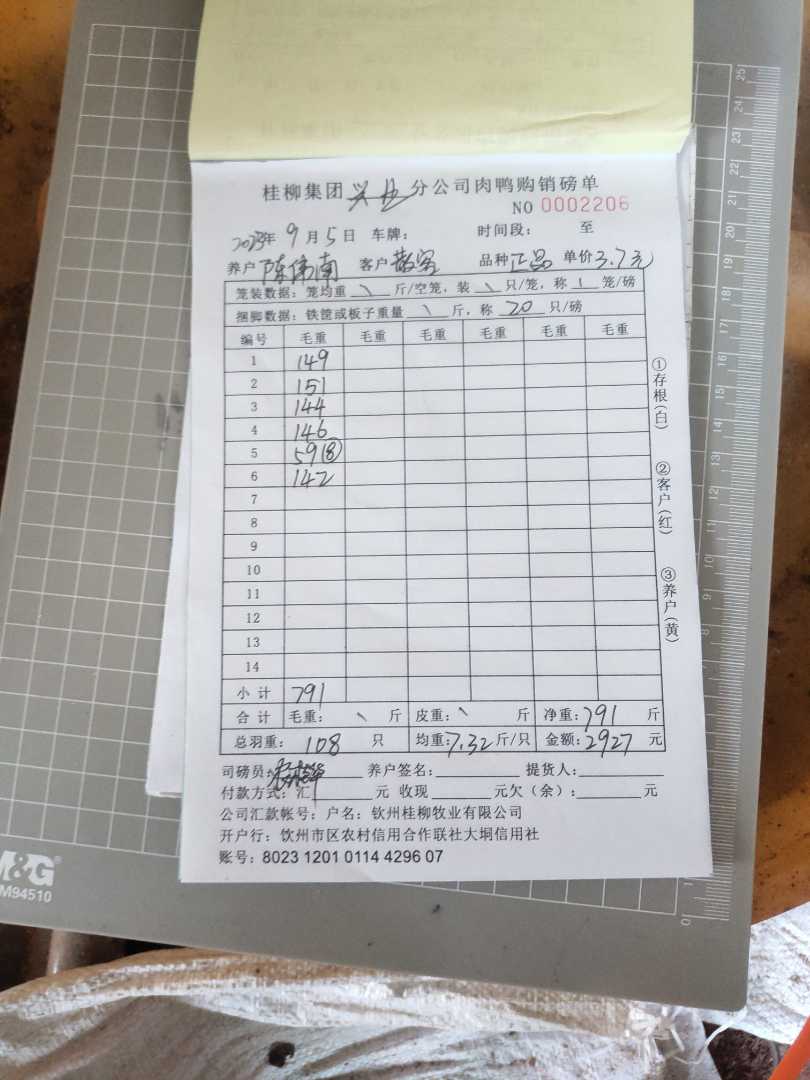 桂柳集团兴业分公司肉鸭购销磅单
NO 0002206
2023年 9月5日 车牌: 时间段: 至
养户 陈伟南 客户 散客 品种 正品 单价 3.7元
笼装数据: 笼均重 \ 斤/空笼, 装 \ 只/笼, 称 \ 笼/磅
捆脚数据: 铁镗或板子重量 \ 斤, 称 20 只/磅
编号 毛重 毛重 毛重 毛重 毛重 毛重
1 149
2 151
3 144
4 146
5 59⑧
6 142
7
8
9
10
11
12
13
14
小计 791
合计 毛重: \ 斤 皮重: \ 斤 净重: 791 斤
总羽重: 108 只 均重: 7.32 斤/只 金额: 2927 元
司磅员: 养户签名: 提货人:
付款方式: 汇 元 收现 元欠(余): 元
公司汇款帐号: 户名: 钦州桂柳牧业有限公司
开户行: 饮州市区农村信用合作联社大垌信用社
账号: 8023 1201 0114 4296 07
①存根(白)
②客户(红)
③养户(黄)
M&G
M94510
25
24
23
22
21
20
19
18
17
16
15
14
13
12
11
10
9
8
0